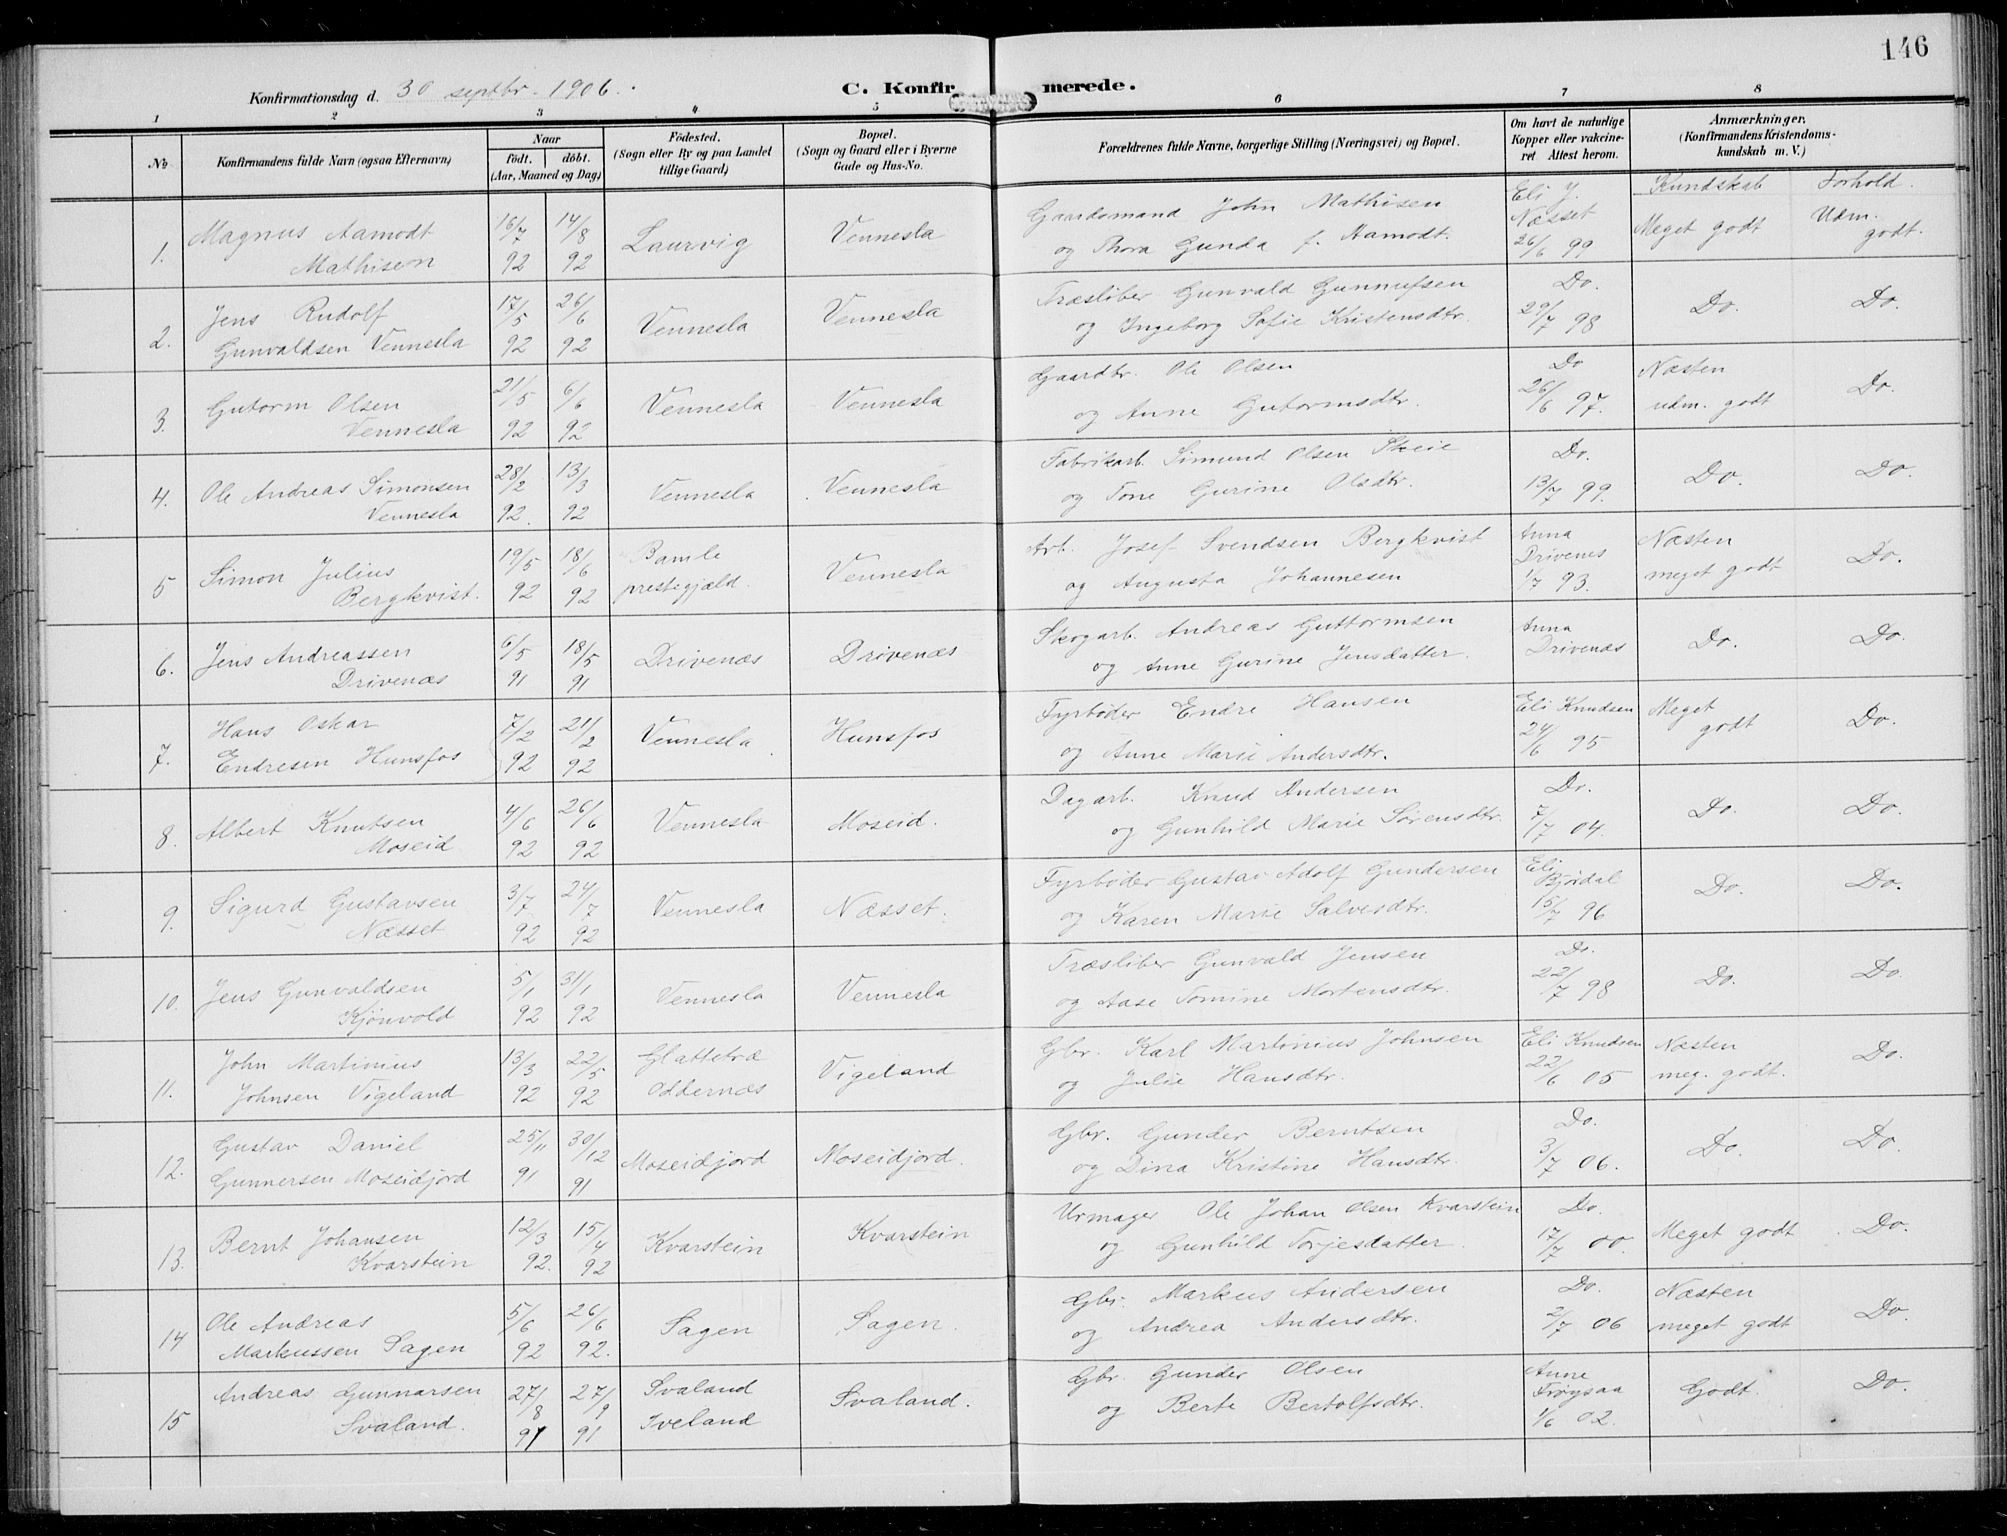 146
Konfirmationsdag d. 30 septbr. 1906.
C. Konfirmerede.
1 2 3 4 5 6 7 8
No
Konfirmandens fulde Navn (ogsaa Efternavn)
Naar
født. døbt.
(Aar, Maaned og Dag)
Fødested.
(Sogn eller By og paa Landet
tillige Gaard)
Bopæl.
(Sogn og Gaard eller i Byerne
Gade og Hus-No.
Forældrenes fulde Navne, borgerlige Stilling (Næringsvei) og Bopæl.
Om havt de naturlige
Kopper eller vakcine-
ret Attest herom.
Anmærkninger.
(Konfirmandens Kristendoms-
kundskab m. V.)
Kundskab Forhold.
1. Magnus Aamodt
Mathisen
16/7 92
14/8 92
Laurvig
Vennesla
John Mathisen
og Thora Gunda f. Aamodt.
Eli J.
Næsset
26/6 99
Meget godt
Udm.
godt.
2. Jens Rudolf
Gunvaldsen Vennesla
17/5 92
26/6 92
Vennesla
Vennesla
Træsliber Gunvald Gunnufsen
og Ingeborg Sofie Kristensdtr.
Do.
29/7 98
Do.
Do.
3. Gutorm Olsen
Vennesla
21/5 92
6/6 92
Vennesla
Vennesla
Gaardbr. Ole Olsen
og Anne Gutormsdtr.
Do
26/6 97.
Næsten
udm. godt
Do.
4. Ole Andreas Simonsen
Vennesla
28/2 92.
13/3 92
Vennesla
Vennesla
Fabrikarb. Simund Olsen Skeie
og Tone Gurine Olsdtr.
Do.
13/7 99.
Do.
Do.
5 Simon Julius
Bergkvist.
19/5 92
18/6 92
Bamle
prestegjæld.
Vennesla
Arb. Josef Svendsen Bergkvist
og Augusta Johannesen
Anna
Drivenes
1/7 93.
Næsten
meget godt
Do.
6. Jens Andreassen
Drivenæs
6/5 91
18/5 91
Drivenæs
Drivenæs
Skogarb. Andreas Guttormsen
og Anne Gurine Jensdatter.
Anna
Drivenæs
Do.
Do.
7. Hans Oskar
Endresen Hunsfos
7/2 92
21/2 92
Vennesla
Hunsfos
Fyrbøder Endre Hansen
og Anne Marie Andersdtr.
Eli Knudsen
24/6 95
Meget
godt
Do.
8. Albert Knutsen
Moseid
4/6 92
26/6 92
Vennesla
Moseid.
Dagarb. Knud Andersen
og Gunhild Marie Sørensdtr.
Do.
7/7 04.
Do.
Do.
9. Sigurd Gustavsen
Næsset
3/7 92
24/7 92
Vennesla
Næsset.
Fyrbøder Gustav Adolf Gundersen
og Karen Marie Salvesdtr.
Eli
Bjørdal
15/7 96
Do.
Do.
10. Jens Gunvaldsen
Kjønvold
5/1 92
31/1 92
Vennesla
Vennesla
Træsliber Gunvald Jensen
og Aase Tomine Mortensdtr.
Do.
22/7 98
Do.
Do.
11. John Martinius
Johnsen Vigeland
13/3 92
22/5 92
Glattetræ
Oddernæs
Vigeland
Gbr. Karl Martinius Johnsen
og Julie Hansdtr.
Eli Knudsen
22/6 05
Næsten
meg. godt.
Do.
12. Gustav Daniel
Gunnersen Moseidjord
25/11 91
30/12 91
Moseidjord
Moseidjord.
Gbr. Gunder Berntsen
og Dina Kristine Hansdtr.
Do.
3/7 06.
Do.
Do.
13. Bernt Johansen
Kvarstein
12/3 92.
15/4 92
Kvarstein
Kvarstein
Urmager Ole Johan Olsen Kvarstein
og Gunhild Torjesdatter.
Do.
17/7 00.
Meget godt
Do.
14 Ole Andreas
Markussen Sagen
5/6 92
26/6 92.
Sagen
Sagen.
Gbr. Markus Andersen
og Andrea Andersdtr.
Do.
2/7 06
Næsten
meget godt
Do.
15 Andreas Gunnarsen
Svaland.
27/8 91
27/9 91
Svaland
Iveland
Svaland.
Gbr. Gunder Olsen
og Berte Bertolfsdtr.
Anne
Frøysaa
1/6 02.
Godt.
Do.